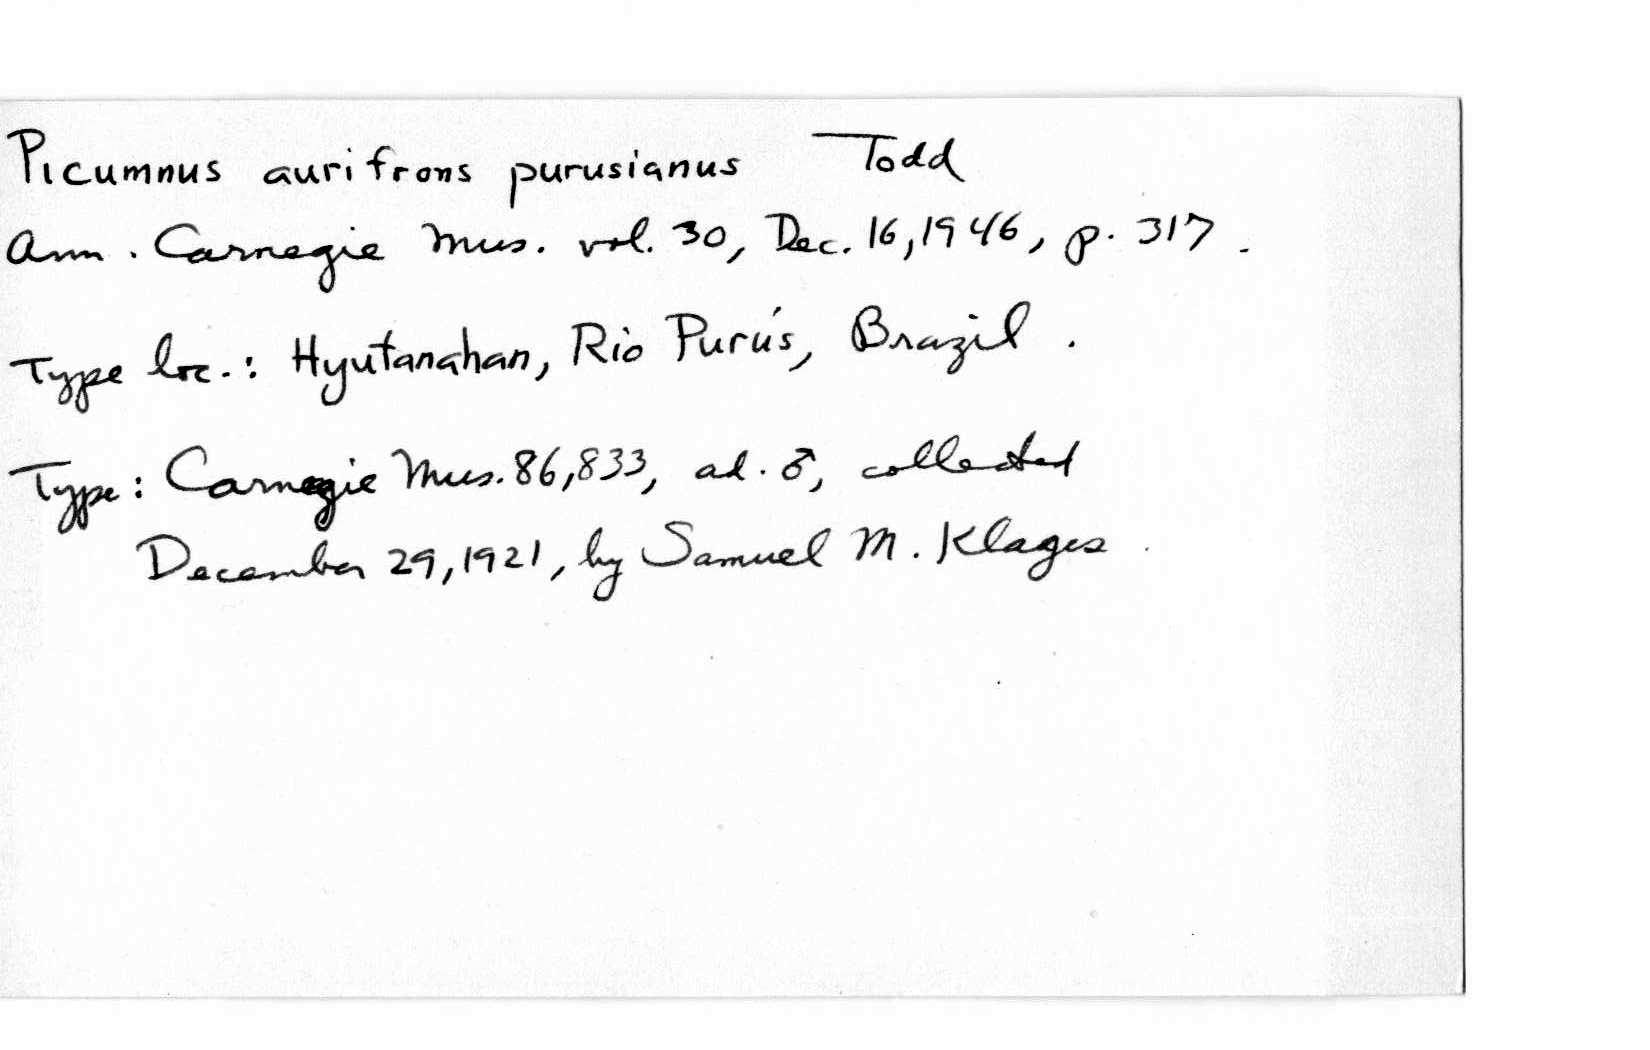 Picumnus aurifrons purusianus Todd
Ann. Carnegie Mus. vol. 30, Dec. 16, 1946, p. 317.
Type loc.: Hyutanahan, Rio Purús, Brazil.
Type: Carnegie Mus. 86,833, ad. ♂, collected
December 29, 1921, by Samuel M. Klages.